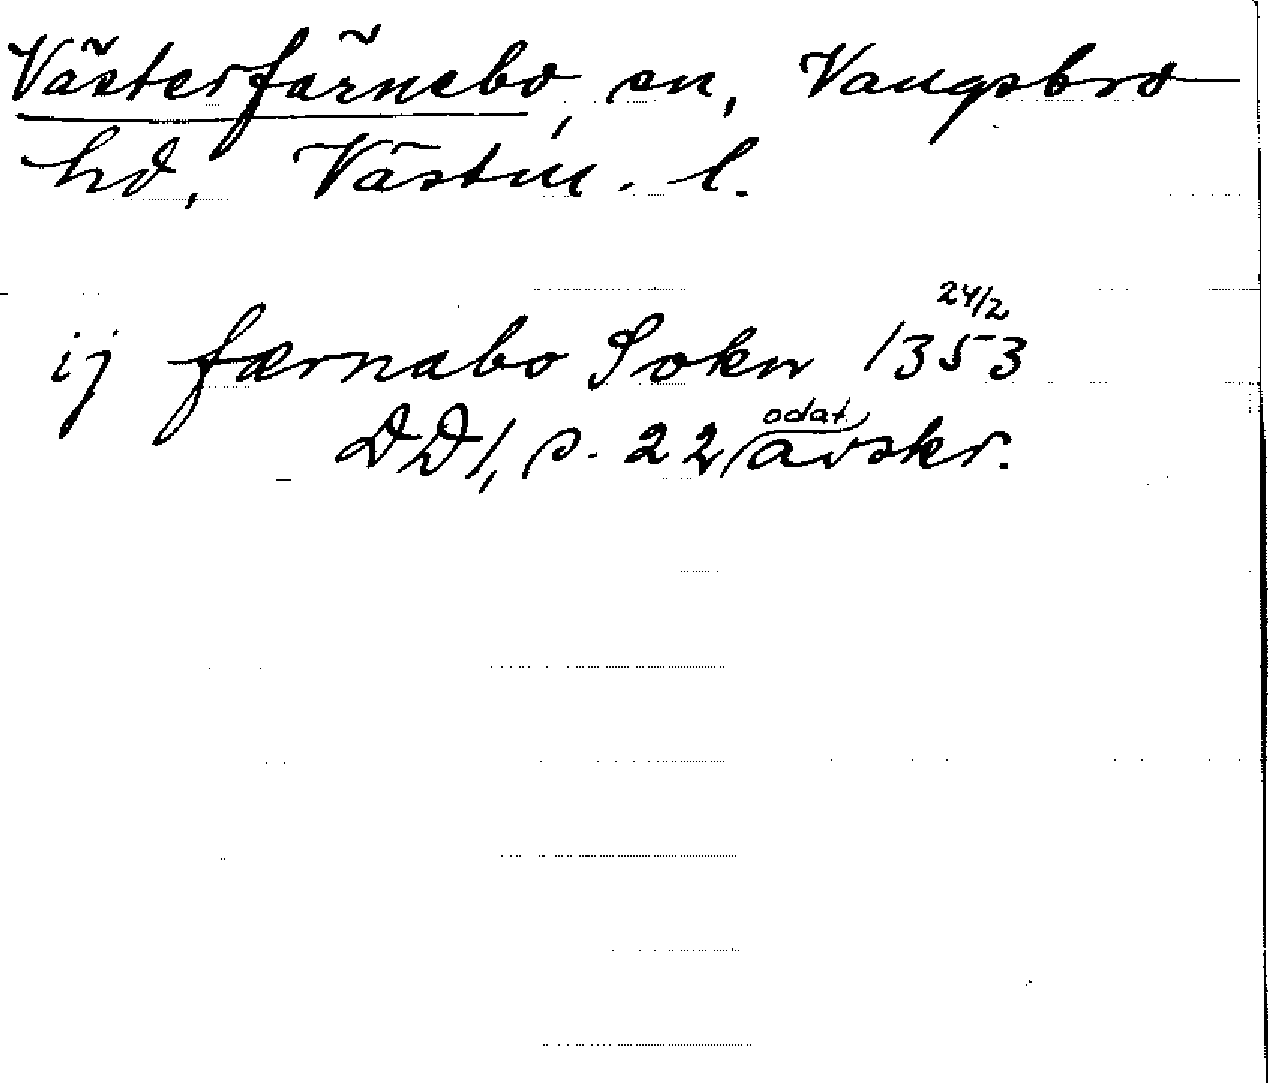 Västerfärnebo, sn, Vangsbro
hd, Västm. l.
ij færnabo Sokn 1353 24/2
DD1, s. 22 odat. avskr.